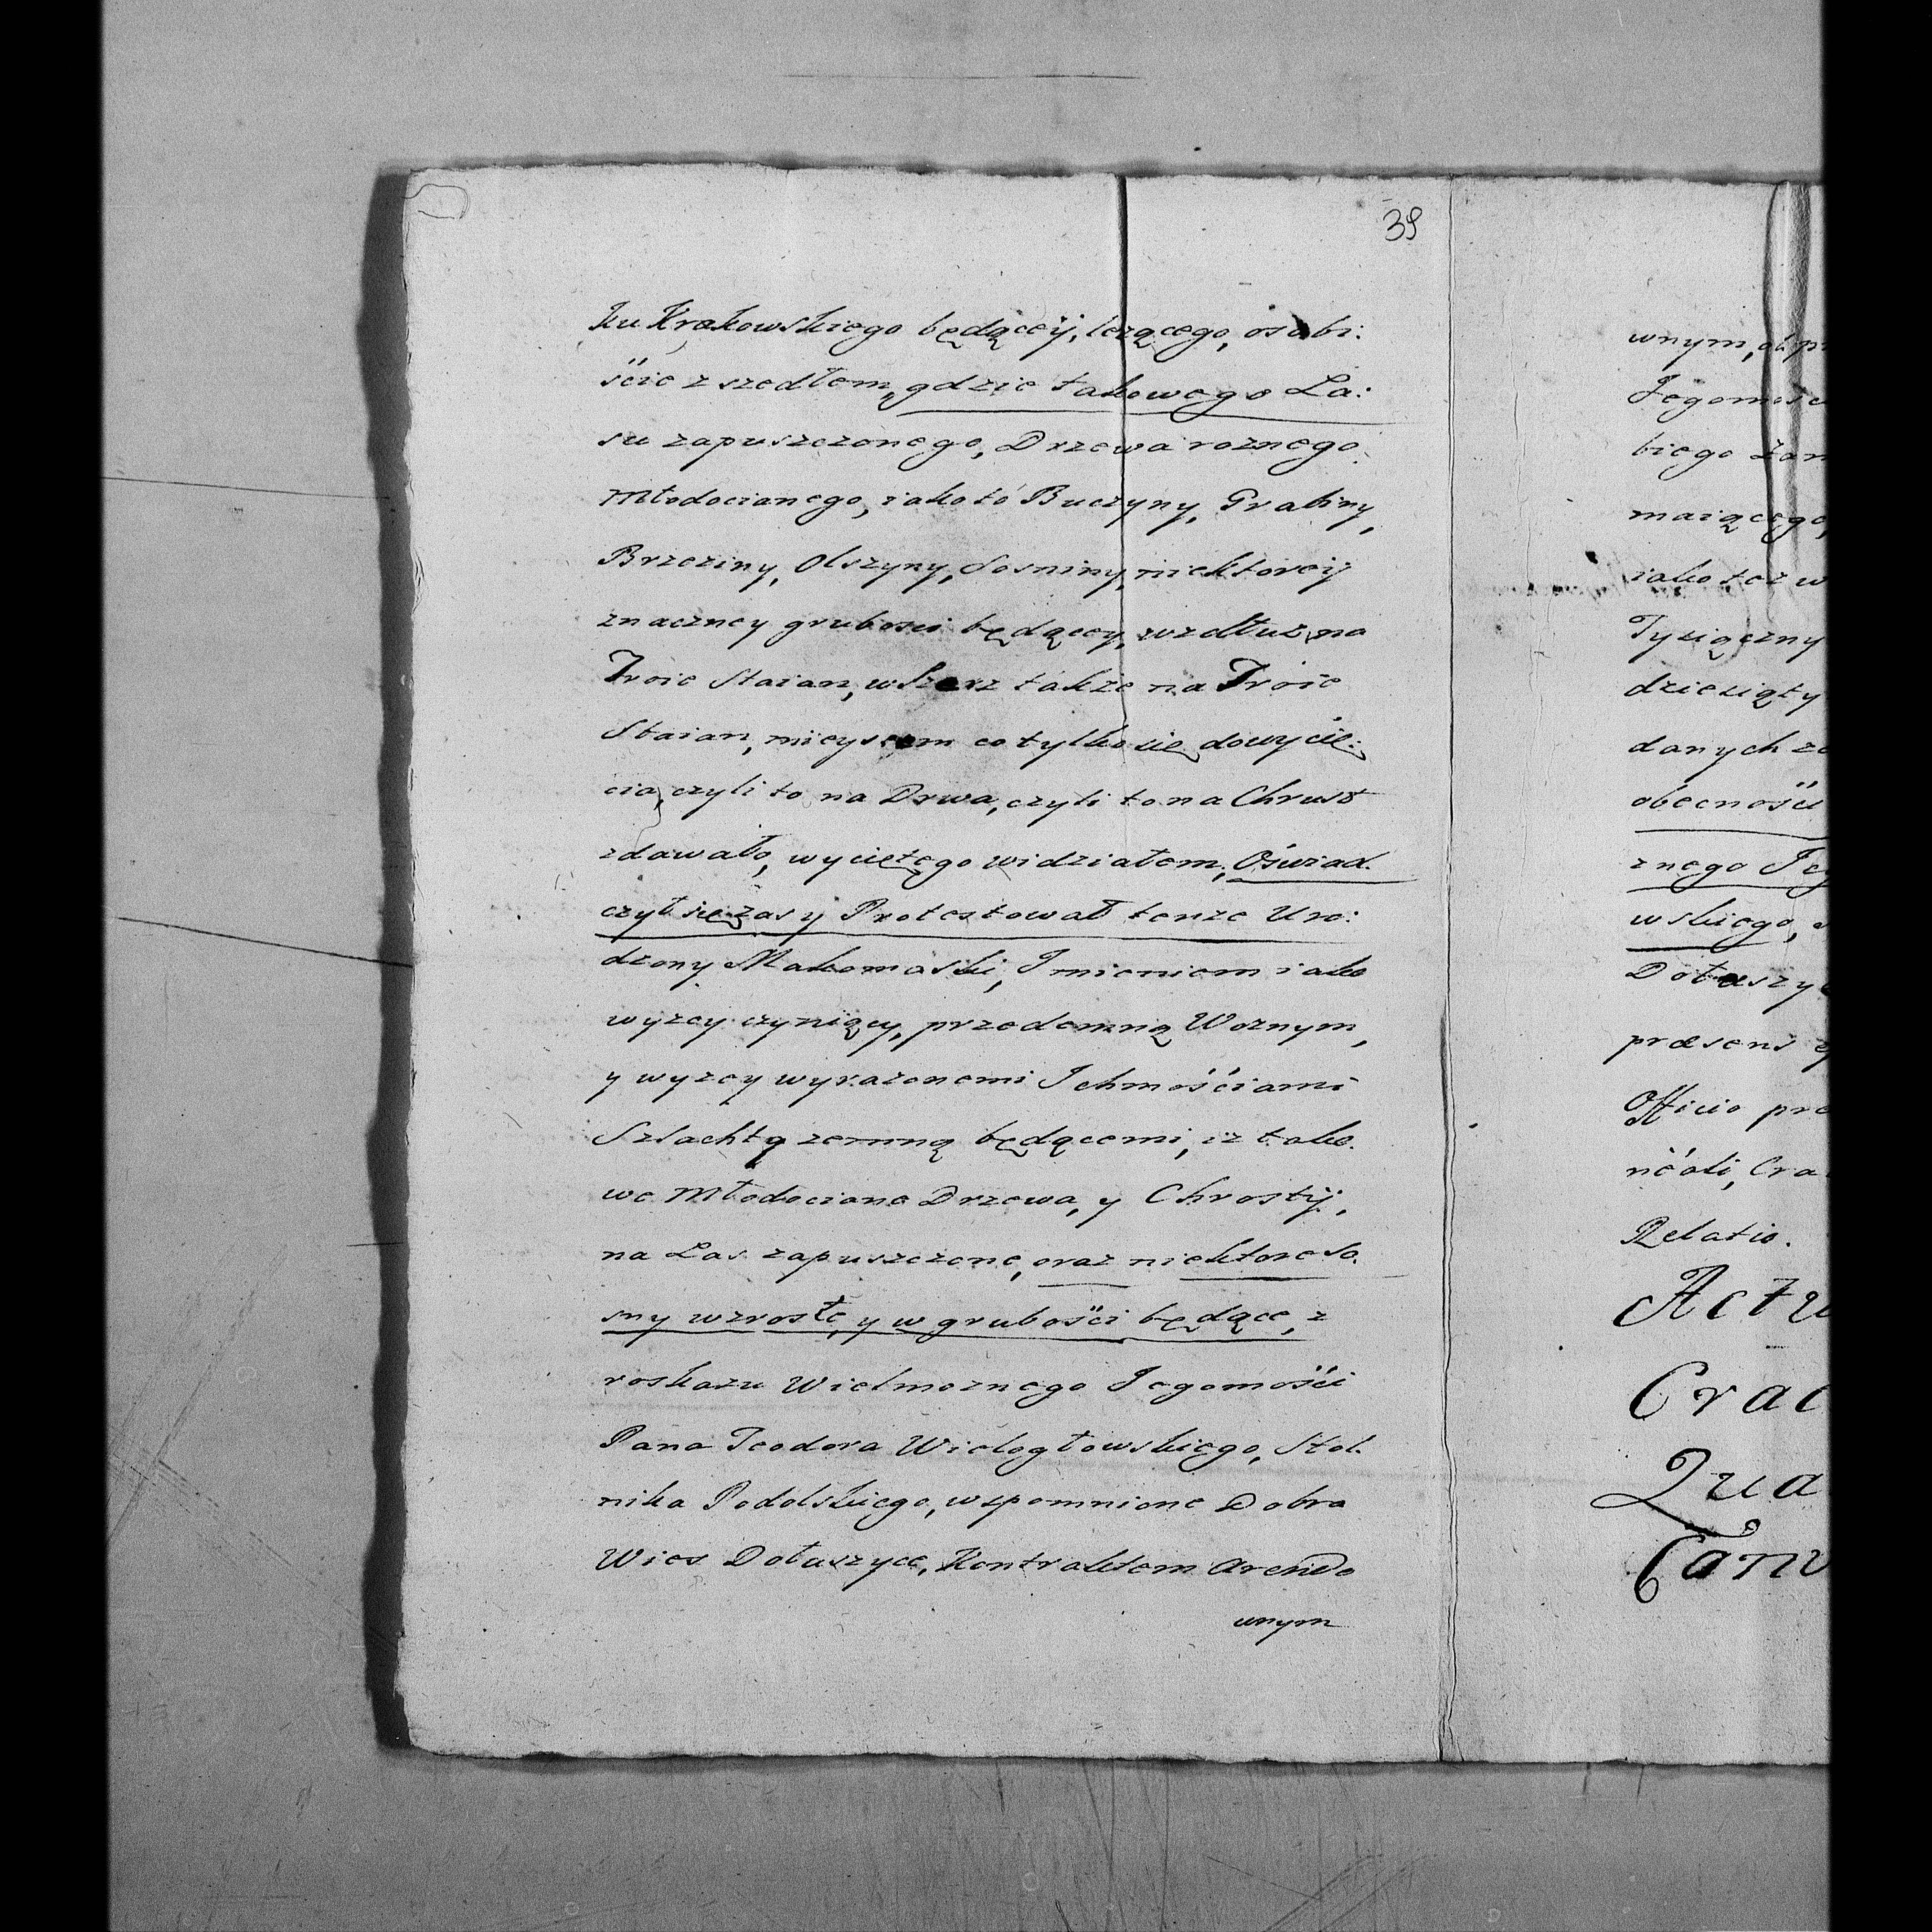 39
ku Krakowskiego będącey, lezącego, osobi:
ście zszedłem, gdzie takowego La:
su zapuszczonego, Drzewa roznego
Młodocianego, iako to Buczyny, Grabiny,
Brzeziny, Olszyny, Sosniny, niektorey
znaczney grubosci będącey, wzdłuz na
Troie Staian, wszerz także na Troie
Staian, mieyscem co tylko się do wycię:
cia, czyli to na Drwa, czyli to na Chrust
zdawało, wyciętego widziałem, Oświad.
czył się zas y Protestował tenze Uro:
dzony Makomaski, Imieniem iako
wyzey czyniący, przedemną Woznym,
y wyzey wyrazonemi Ichmościami
Szlachtą zemną będącemi, iz tako.
we Młodociane Drzewa, y Chrosty,
na Las zapuszczone, oraz niektore So.
sny wzrosłe, y w grubości będące, z
roskazu Wielmoznego Jegomości
Pana Teodora Wielogłowskiego, Stol.
nika Podolskiego, wspomnione Dobra
Wies Dołuszyce, Kontraktem Arendo
wnym
wnym,
Jegomośc
biego
maiącego,
iako też w
Tysiączny
dziesiąty
danych
obecności
znego
wskiego,
Dołuszyc
præsens
Officio
Relatio.